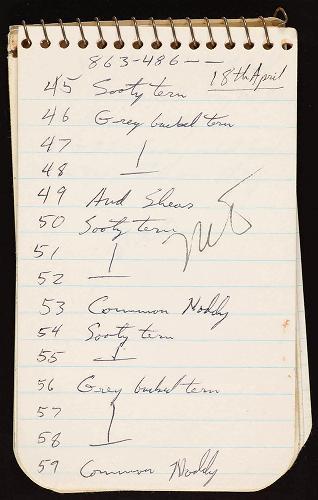 863-486--
18th April
45 Sooty tern
46 Grey backed tern
47
48
49 Aud Shear
50 Sooty tern
51
52
53 Common Noddy
54 Sooty tern
55
56 Grey backed tern
57
58
59 Common Noddy